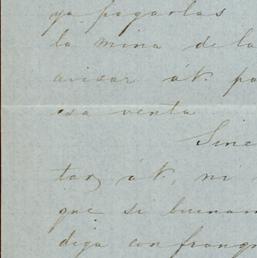 ya pagarlas
la mina de la
avisar á V. pa
esa venta
Sine
tar, á V., ni
que si buenam
diga con franq